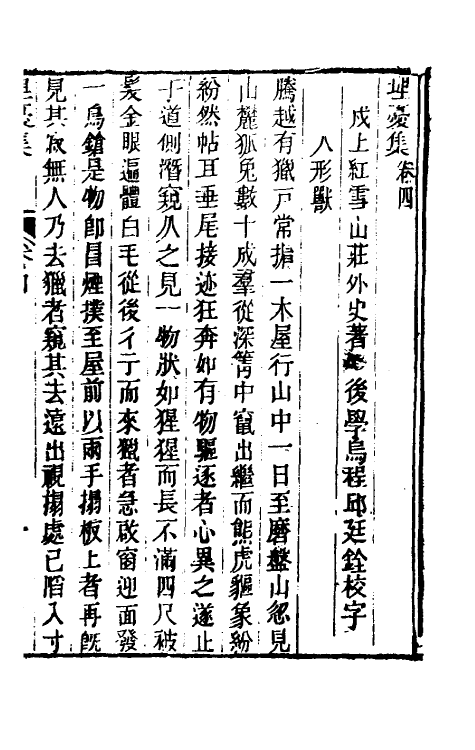 埋憂集卷四
戍上紅雪山莊外史著 後學烏程邱廷銓校字
人形獸
騰越有獵戸常揹一木屋行山中一日至磨盤山忽見
山麓狐兎數十成羣從深箐中竄出繼而熊虎貙象紛
紛然帖耳垂尾接迹狂奔如有物驅逐者心異之遂止
于道側潛窺久之見一物狀如猩猩而長不滿四尺被
髮金眼遍體白毛從後彳亍而來獵者急啟窗迎面發
一鳥鎗是物卽冒煙撲至屋前以兩手搨板上者再旣
見其寂無人乃去獵者窺其去遠出視搨處已陷入寸
埋憂集 卷四 一